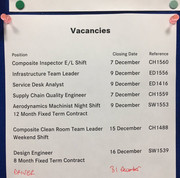 Vacancies
Position Closing Date Reference
Composite Inspector E/L Shift 7 December CH1560
Infrastructure Team Leader 9 December ED1556
Service Desk Analyst 9 December ED1416
Supply Chain Quality Engineer 7 December CH1559
Aerodynamics Machinist Night Shift 9 December SW1553
12 Month Fixed Term Contract
Composite Clean Room Team Leader 15 December CH1488
Weekend Shift
Design Engineer 16 December SW1539
8 Month Fixed Term Contract
December